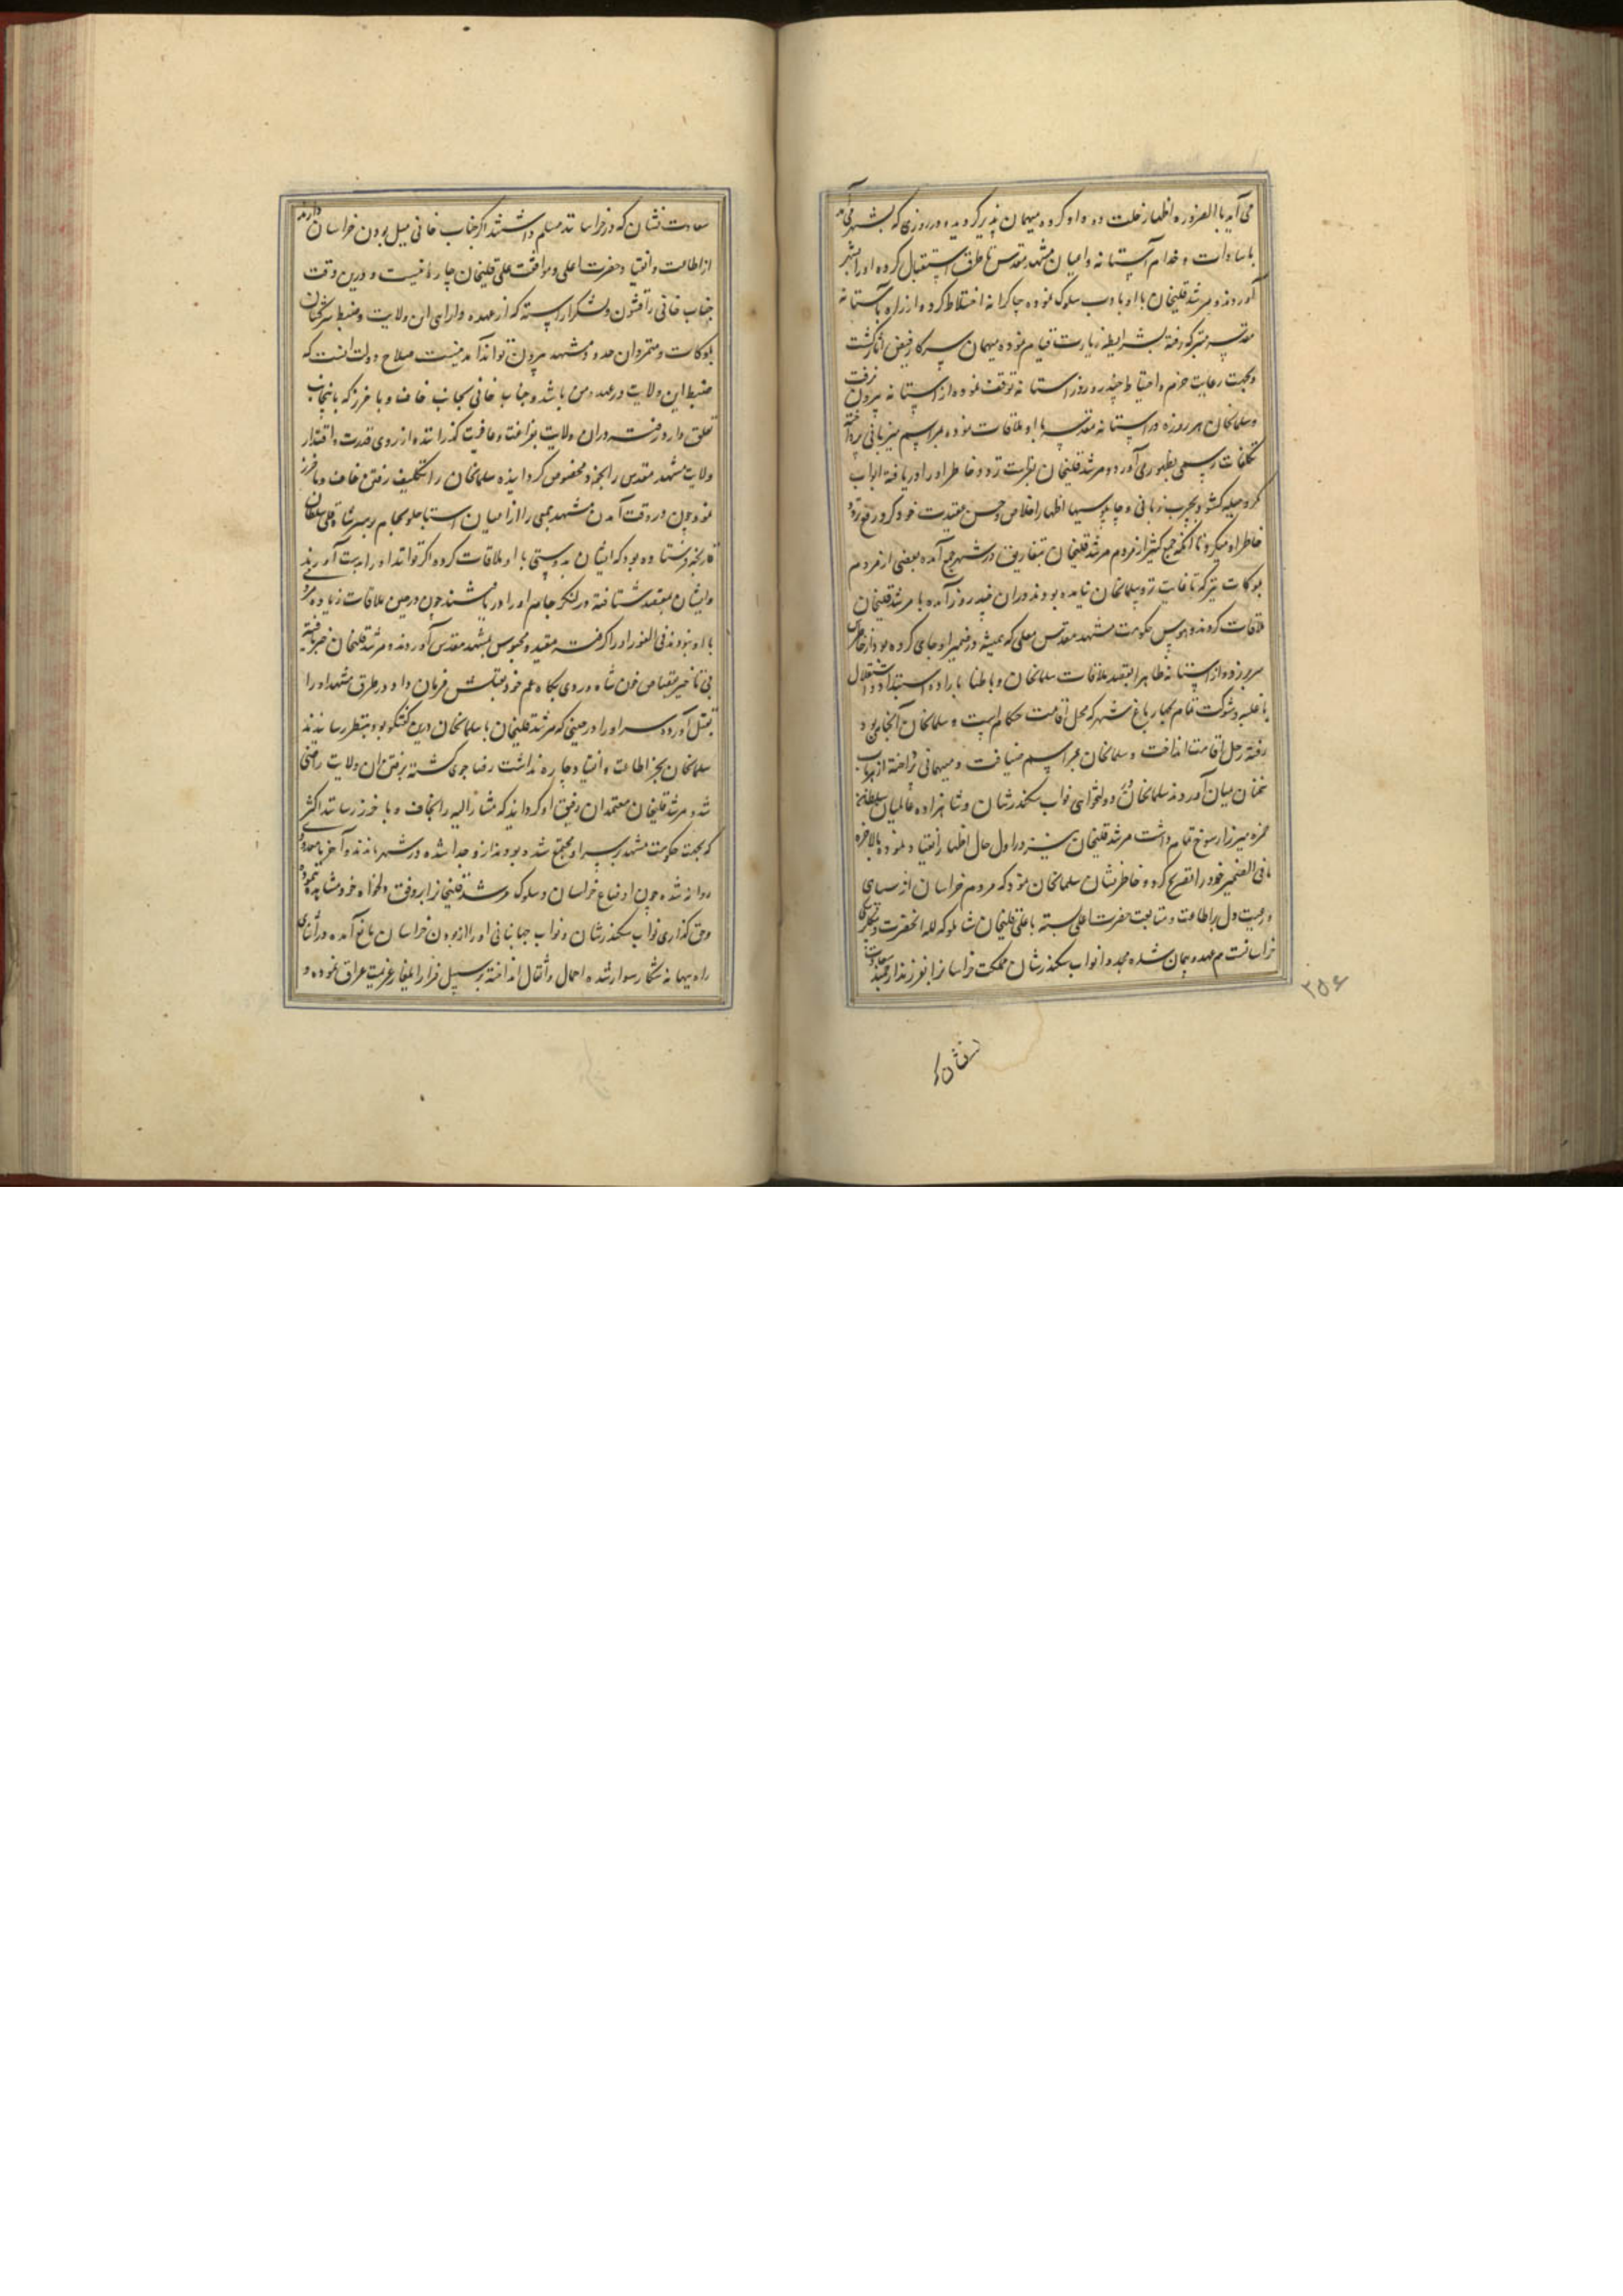 می آید بالضروره اظهار خلت و داد کرده میهمان پذیر گردیده در روزی که بشهر می آمد
با سادات و خدام آستانه و اعیان مشهد مقدس تا طرق استقبال کرده او را بشهر
آوردند و مرشد قلیخان با او بادب سلوک نموده چاکرانه اختلاط کرده از راه بآستانه
مقدسه متبرکه رفته بشرایط زیارت قیام نموده میهمان سرکار فیض آثار گشت
و بجهت رعایت حزم و احتیاط چند روز در آستانه توقف نموده از آستانه بیرون نرفت
و سلمانخان هر روزه در آستانه مقدسه با او ملاقات نموده بمراسم میزبانی پرداخته
تکلفات رسمی بظهور می آورد و مرشد قلیخان بفراست تردد خاطر او را دریافته ابواب
مکر و حیله گشوده بچرب زبانی و چاپلوسیها اظهار اخلاص و حسن عقیدت خود کرده رفع تردد
خاطر او میکرد تا آنکه جمع کثیر از مردم مرشد قلیخان بتفاریق در شهر جمع آمده بعضی از مردم
بلوکات نیز که تا غایت نزد سلمانخان نیامده بودند در آن چند روز آمده با مرشد قلیخان
ملاقات کردند و هوس حکومت مشهد مقدس معلی که همیشه در ضمیر او جای کرده بود از خاطرش
سر بر زده از آستانه ظاهرا بقصد ملاقات سلمانخان و باطنا باراده استبداد و استقلال
با غلبه و شوکت تمام بچهار باغ شهر که محل اقامت حکام است و سلمانخان آنجا می بود
رفته رحل اقامت انداخت و سلمانخان بمراسم ضیافت و میهمانی پرداخته از هر باب
سخنان بمیان آوردند سلمانخان در دولتخواهی نواب سکندر شان و شاهزاده عالمیان سلطان
حمزه میرزا رسوخ تمام داشت مرشد قلیخان نیز در اول حال اظهار انقیاد نموده بالاخره
ما فی الضمیر خود را تصریح کرد و خاطر نشان سلمانخان نمود که مردم خراسان از سپاهی
و رعیت دل بر اطاعت و متابعت حضرت اعلی بسته با علی قلیخان شاملو که لله آنحضرت و بیگلربیگی
خراسانست هم عهد و پیمان شده مجددا نواب سکندر شان مملکت خراسان را بفرزند ارجمند سعادت
۳۵۶
نشان که
سعادت نشان که در خراسانند مسلم داشتند اگر جناب خانی میل بودن خراسان دارند
از اطاعت و انقیاد حضرت اعلی و موافقت علی قلیخان چاره نیست و درین وقت
جناب خانی را قشون و لشکر آراسته که از عهده دارایی این ولایت و ضبط سرکشان
بلوکات و متمردان حدود مشهد بیرون تواند آمد نیست صلاح دولت آنست که
ضبط این ولایت در عهده من باشد و جناب خانی بجانب خاف و باخرز که بآنجناب
تعلق دارد رفته در آن ولایت بفراغت و عافیت گذرانند و از روی قدرت و اقتدار
ولایت مشهد مقدس را بخود مخصوص گردانیده سلمانخان را تکلیف رفتن خاف و باخرز
نمود چون در وقت آمدن مشهد جمعی را از اعیان استاجلو بجام بر سر شاه قلی سلطان
قارنجه فرستاده بود که ایشان بدوستی با او ملاقات کرده اگر توانند او را بدست آورند
و ایشان بمقصد شتافته در لنگر جام او را دریافتند چون در حین ملاقات زیاده مردی
با او نبودند فی الفور او را گرفته مقید و محبوس بمشهد مقدس آوردند و مرشد قلیخان خبر یافته
بی تاخیر بقصاص خون شاهوردی بیگ عم خود بقتلش فرمان داد در طرق مشهد او را
بقتل آورده سر او را در حینی که مرشد قلیخان با سلمانخان درین گفتگو بود بنظر رسانیدند
سلمانخان بجز اطاعت و انقیاد چاره نداشت رضا جوی گشته برفتن آن ولایت راضی
شد و مرشد قلیخان معتمدان رفیق او گردانید که مشار الیه را بخاف و باخرز رسانند اکثر
که بجهت حکومت مشهد بر سر او مجتمع شده بودند از و جدا شده در شهر ماندند و آخر با معدودی
روانه شده چون اوضاع خراسان و سلوک مرشد قلیخان را بر وفق دلخواه خود مشاهده ننمود
و حق گذاری نواب سکندر شان و نواب جهانبانی او را از بودن خراسان مانع آمده در اثنای
راه ببهانه شکار سوار شده احمال و اثقال انداخته بر سبیل فرار ایلغار عزیمت عراق نموده و